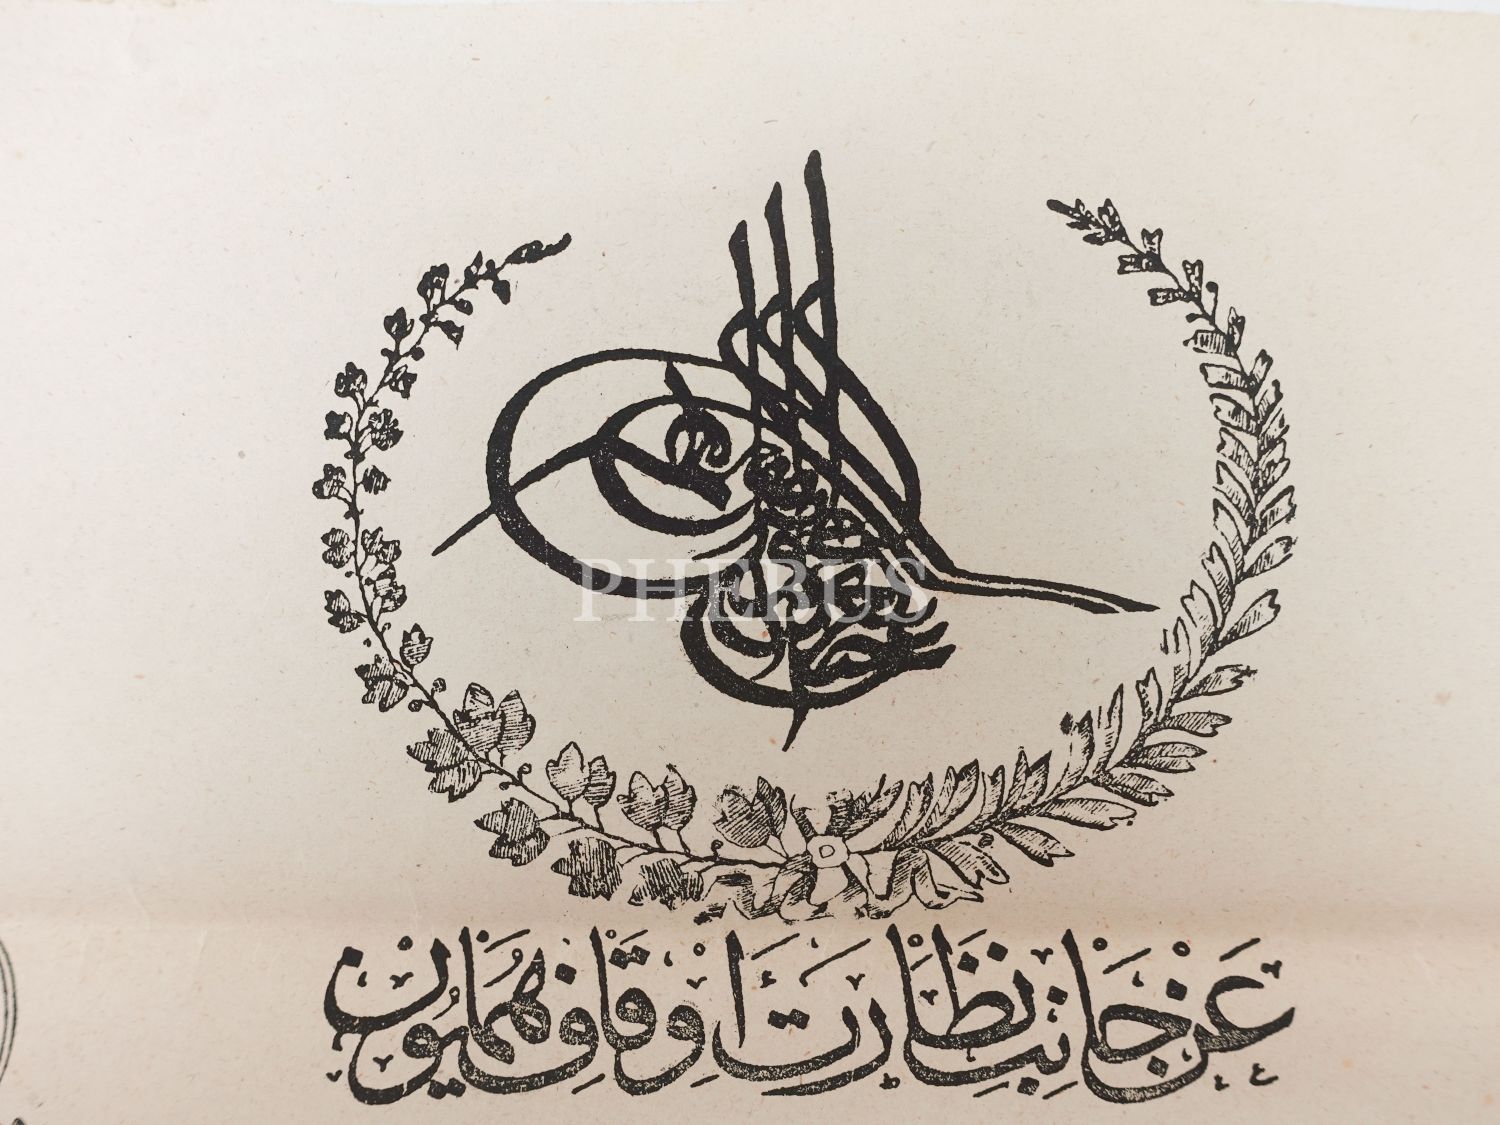 PHEBUS
عَنْ جَانِبِ نَظَارَتْ اَوْقَافِ هُمَايُونْ